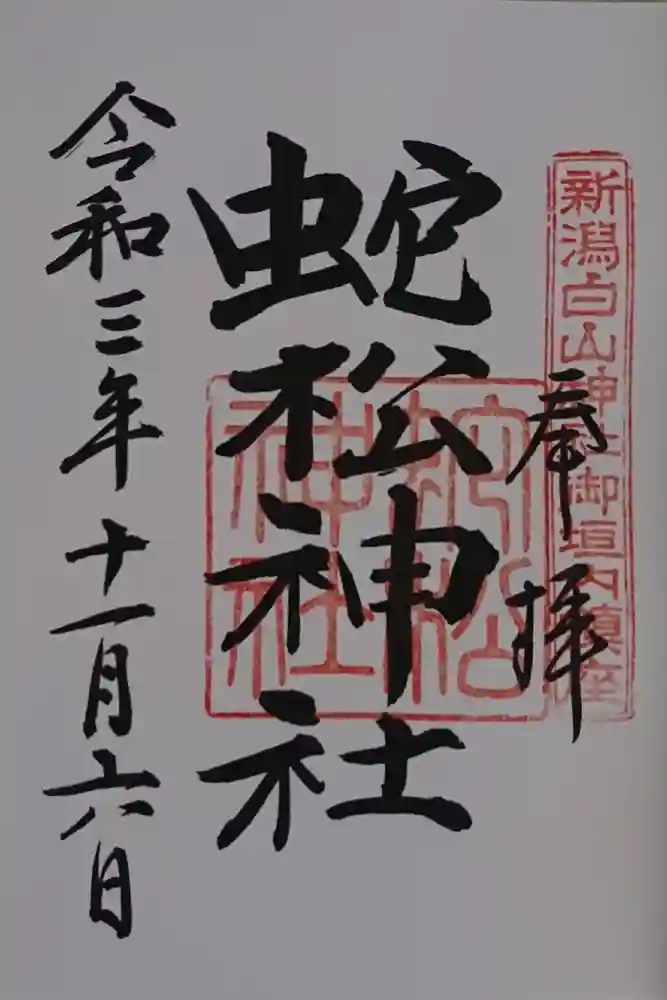 新潟白山神社御垣内鎮座
奉拝
蛇松神社
蛇松
神社
令和三年十一月六日